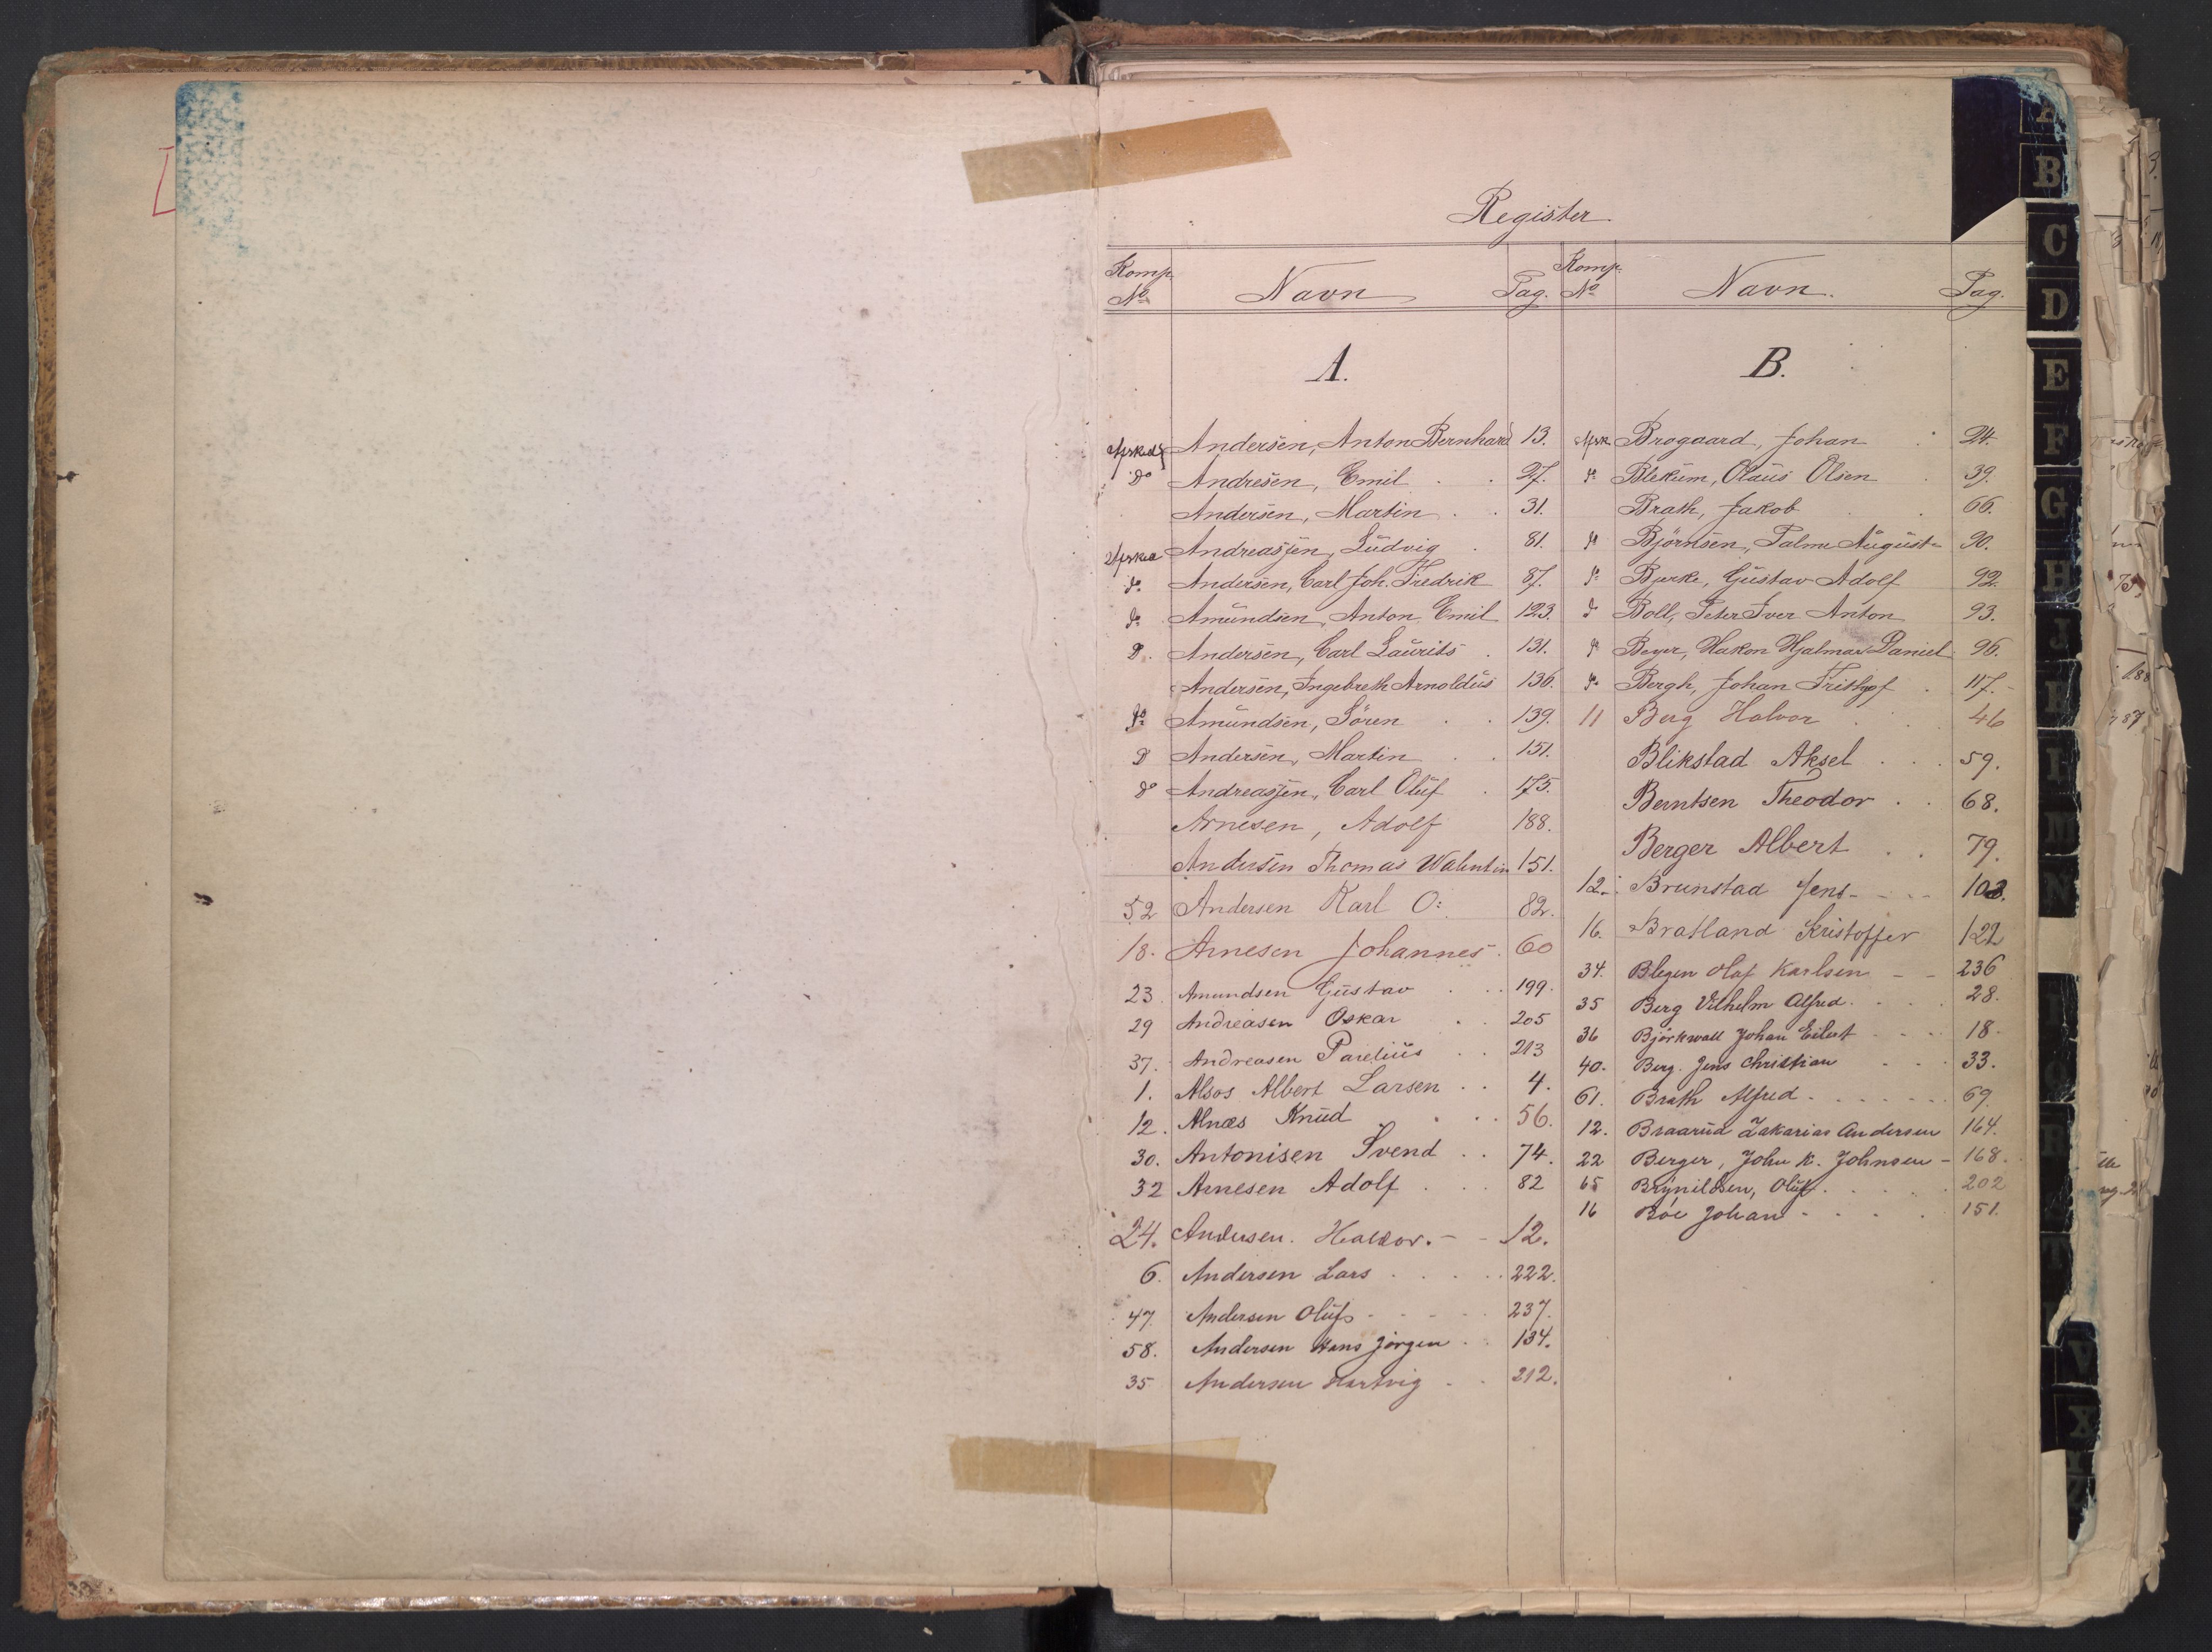 Register.
Komp. No Navn Pag. Komp. No Navn. Pag.
A.
Afsked Andersen, Anton Bernhard 13.
Do Andresen, Emil 27.
Andersen, Martin 31.
Afsked Andreassen, Ludvig 81.
do Andersen, Carl Joh. Fredrik 87.
do Amundsen, Anton Emil 123.
D. Andersen, Carl Laurits 131.
Andersen, Ingebreth Arnoldus 136.
do Amundsen, Sören 139.
D Andersen, Martin 151.
do Andreassen, Carl Oluf 175.
Arnesen, Adolf 188.
Andersen Thomas Walentin 151.
52 Andersen Karl O: 82.
18. Arnesen Johannes 60
23. Amundsen Gustav 199.
29 Andreasen Oskar 205
37. Andreasen Parelius 213
1. Alsos Albert Larsen 4.
12. Alnæs Knud 56.
30. Antonisen Svend 74.
32 Arnesen Adolf 82
24. Andersen. Haldor. 12.
6. Andersen Lars 222.
47. Andersen Oluf 237.
58. Andersen Hans Jörgen 134.
35 Andersen Hartvig 212.
B.
Afsk. Brogaard, Johan 24.
do Blekum, Olaus Olsen 39.
Brath, Jakob 66.
do Björnsen, Palme August 90.
do Bjerke, Gustav Adolf 92.
d Boll, Peter Iver Anton 93.
do Beyer, Hakon Hjalmar Daniel 96.
do Bergh, Johan Frithjof 117.
11 Berg Halvor 46
Blikstad Aksel 59.
Berntsen Theodor 68.
Berger Albert 79.
12. Brunstad Jens 103.
16. Bratland Kristoffer 122
34. Blegen Olaf Karlsen 236
35 Berg Vilhelm Alfred 28.
36 Björkwall Johan Eilert 18.
40. Berg. Jens Christian 33.
61. Brath Alfred 69.
12. Braarud Zakarias Andersen 164.
22 Berger, John K. Johnsen 168.
65 Brynildsen, Oluf 202
16 Böe Johan 151.
B
C
D
E
F
G
H
J
K
L
M
N
R
T
V
X